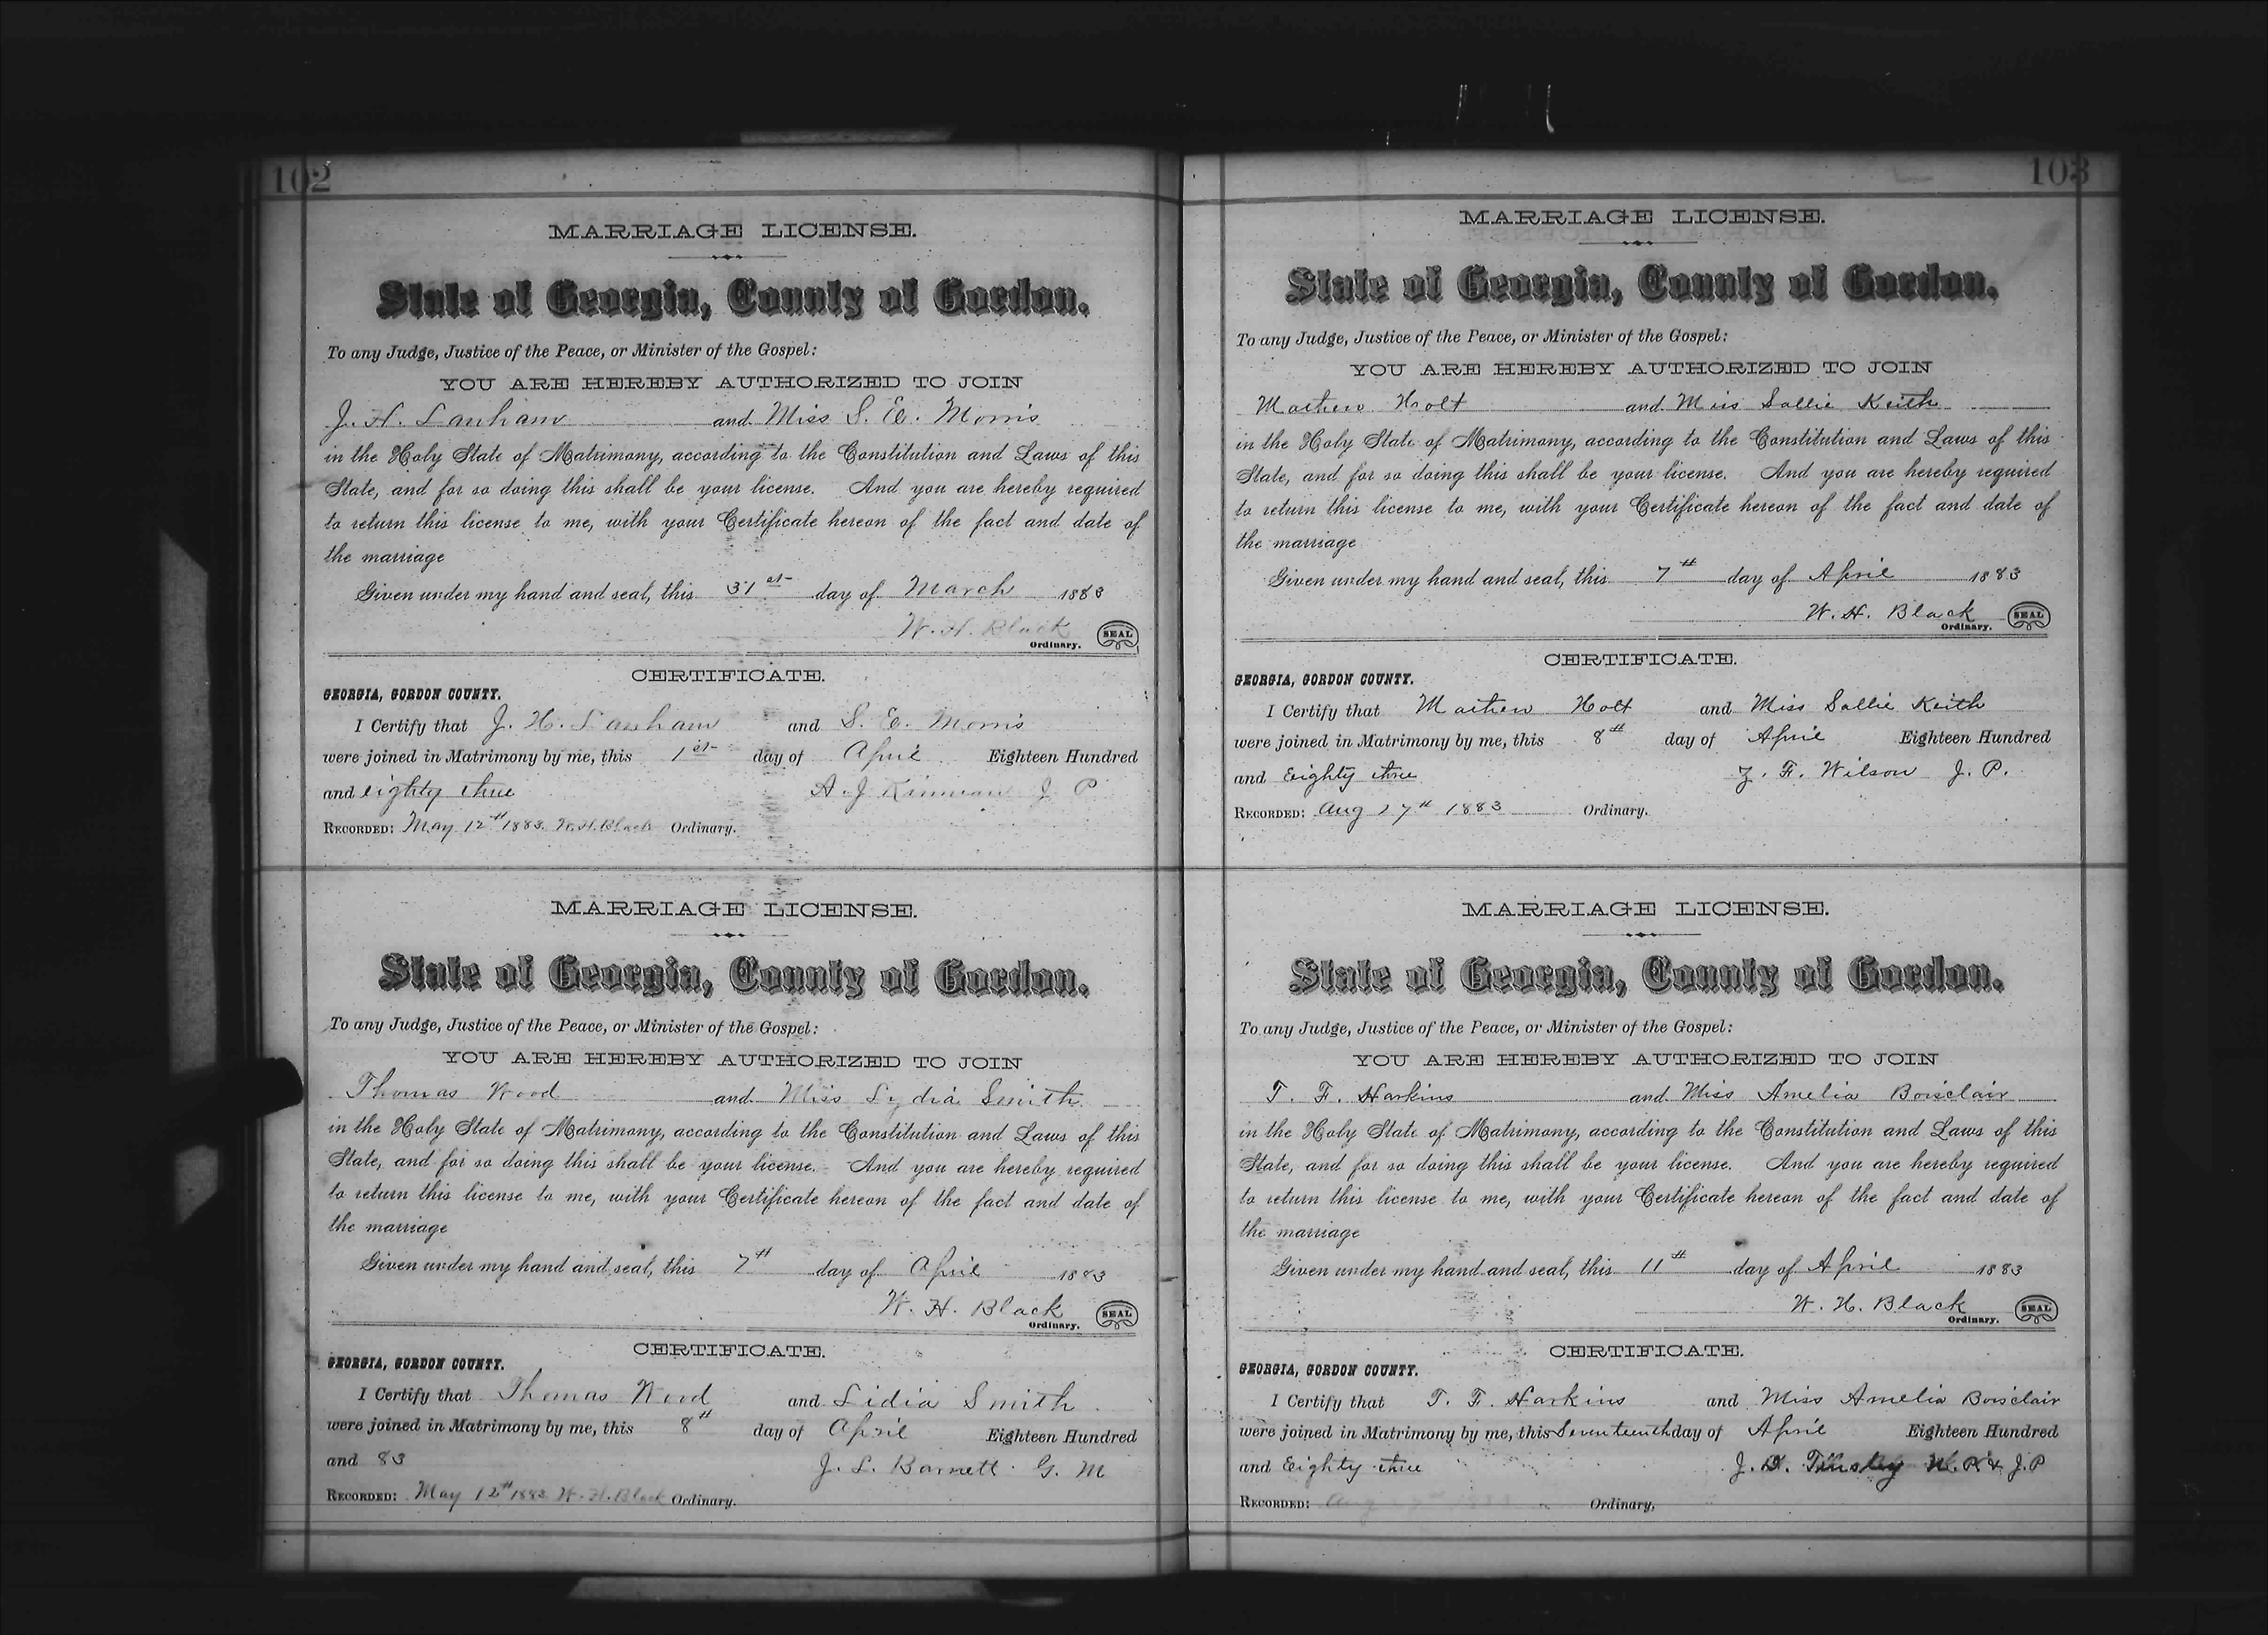 102
MARRIAGE LICENSE.
State of Georgia, County of Gordon.
To any Judge, Justice of the Peace, or Minister of the Gospel:
YOU ARE HEREBY AUTHORIZED TO JOIN
J. H. Lanham and Miss S. E. Morris
in the Holy State of Matrimony, according to the Constitution and Laws of this
State, and for so doing this shall be your license. And you are hereby required
to return this license to me, with your Certificate hereon of the fact and date of
the marriage
Given under my hand and seal, this 31st day of March 1883
W. H. Black
Ordinary. SEAL
CERTIFICATE.
GEORGIA, GORDON COUNTY.
I Certify that J. H. Lanham and S. E. Morris
were joined in Matrimony by me, this 1st day of April Eighteen Hundred
and eighty three A. J. Kinman J P
RECORDED: May 12th 1883 W. H. Black Ordinary.
MARRIAGE LICENSE.
State of Georgia, County of Gordon.
To any Judge, Justice of the Peace, or Minister of the Gospel:
YOU ARE HEREBY AUTHORIZED TO JOIN
Thomas Wood and Miss Lydia Smith
in the Holy State of Matrimony, according to the Constitution and Laws of this
State, and for so doing this shall be your license. And you are hereby required
to return this license to me, with your Certificate hereon of the fact and date of
the marriage
Given under my hand and seal, this 7th day of April 1883
W. H. Black
Ordinary. SEAL
CERTIFICATE.
GEORGIA, GORDON COUNTY.
I Certify that Thomas Wood and Lidia Smith
were joined in Matrimony by me, this 8th day of April Eighteen Hundred
and 83 J. L. Barnett G. M
RECORDED: May 12th 1883 W. H. Black Ordinary.
103
MARRIAGE LICENSE.
State of Georgia, County of Gordon.
To any Judge, Justice of the Peace, or Minister of the Gospel:
YOU ARE HEREBY AUTHORIZED TO JOIN
Mathew Holt and Miss Sallie Keith
in the Holy State of Matrimony, according to the Constitution and Laws of this
State, and for so doing this shall be your license. And you are hereby required
to return this license to me, with your Certificate hereon of the fact and date of
the marriage
Given under my hand and seal, this 7th day of April 1883
W. H. Black
Ordinary. SEAL
CERTIFICATE.
GEORGIA, GORDON COUNTY.
I Certify that Mathew Holt and Miss Sallie Keith
were joined in Matrimony by me, this 8th day of April Eighteen Hundred
and Eighty three F. Wilson J. P.
RECORDED: Aug 27th 1883 Ordinary.
MARRIAGE LICENSE.
State of Georgia, County of Gordon.
To any Judge, Justice of the Peace, or Minister of the Gospel:
YOU ARE HEREBY AUTHORIZED TO JOIN
T. F. Harkins and Miss Amelia Boisclair
in the Holy State of Matrimony, according to the Constitution and Laws of this
State, and for so doing this shall be your license. And you are hereby required
to return this license to me, with your Certificate hereon of the fact and date of
the marriage
Given under my hand and seal, this 11th day of April 1883
W. H. Black
Ordinary. SEAL
CERTIFICATE.
GEORGIA, GORDON COUNTY.
I Certify that T. F. Harkins and Miss Amelia Boisclair
were joined in Matrimony by me, this Seventeenth day of April Eighteen Hundred
and Eighty three J. Tinsley J. P
RECORDED: Ordinary.